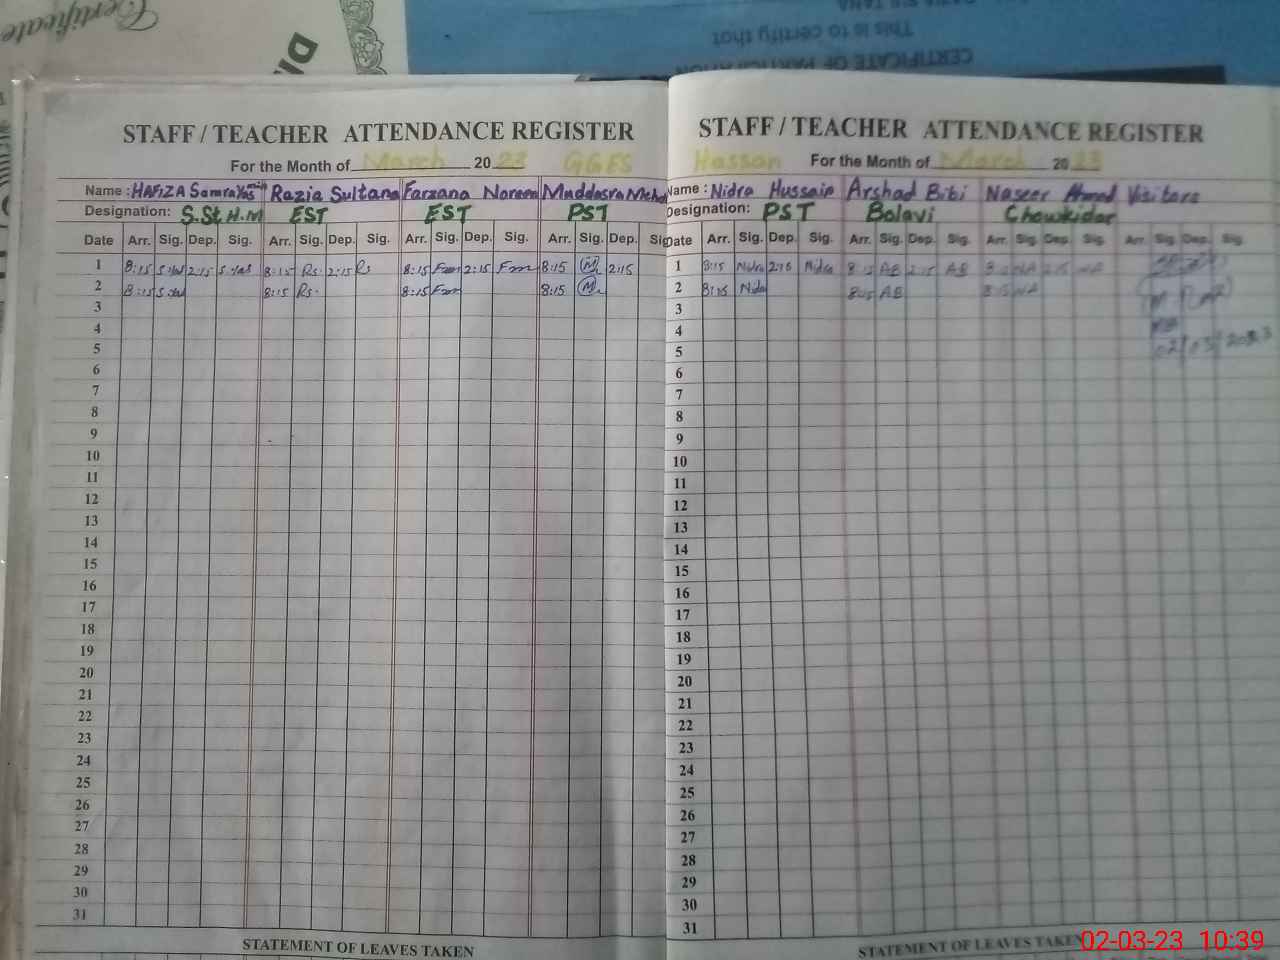 Certificate
This is to certify that
CERTIFICATE OF PARTICIPATION
STAFF / TEACHER ATTENDANCE REGISTER
For the Month of March 2023 GGES
Name : HAFiZA Samra Razia Sultana Farzana Noreen Muddasra
Designation: S.St H.M EST EST PST
Date Arr. Sig. Dep. Sig. Arr. Sig. Dep. Sig. Arr. Sig. Dep. Sig. Arr. Sig. Dep. Sig
1 8:15 2:15 8:15 Rs 2:15 Rs 8:15 2:15 8:15 M 2:15
2 8:15 8:15 Rs. 8:15 8:15 M
3
4
5
6
7
8
9
10
11
12
13
14
15
16
17
18
19
20
21
22
23
24
25
26
27
28
29
30
31
STATEMENT OF LEAVES TAKEN
STAFF / TEACHER ATTENDANCE REGISTER
Hassan For the Month of March 2023
Name : Nidra Hussain Arshad Bibi Naseer Ahmed Visitors
Designation: PST Balavi Chowkidar
Date Arr. Sig. Dep. Sig. Arr. Sig. Dep. Sig. Arr. Sig. Dep. Sig. Arr. Sig. Dep. Sig.
1 8:15 Nidra 2:15 Nidra 8:15 AB 2:15 AB NA 2:15 NA
2 8:15 Nida 8:15 AB 8:15 NA
3
4
5 02/03/2023
6
7
8
9
10
11
12
13
14
15
16
17
18
19
20
21
22
23
24
25
26
27
28
29
30
31
STATEMENT OF LEAVES TAKEN
02-03-23 10:39